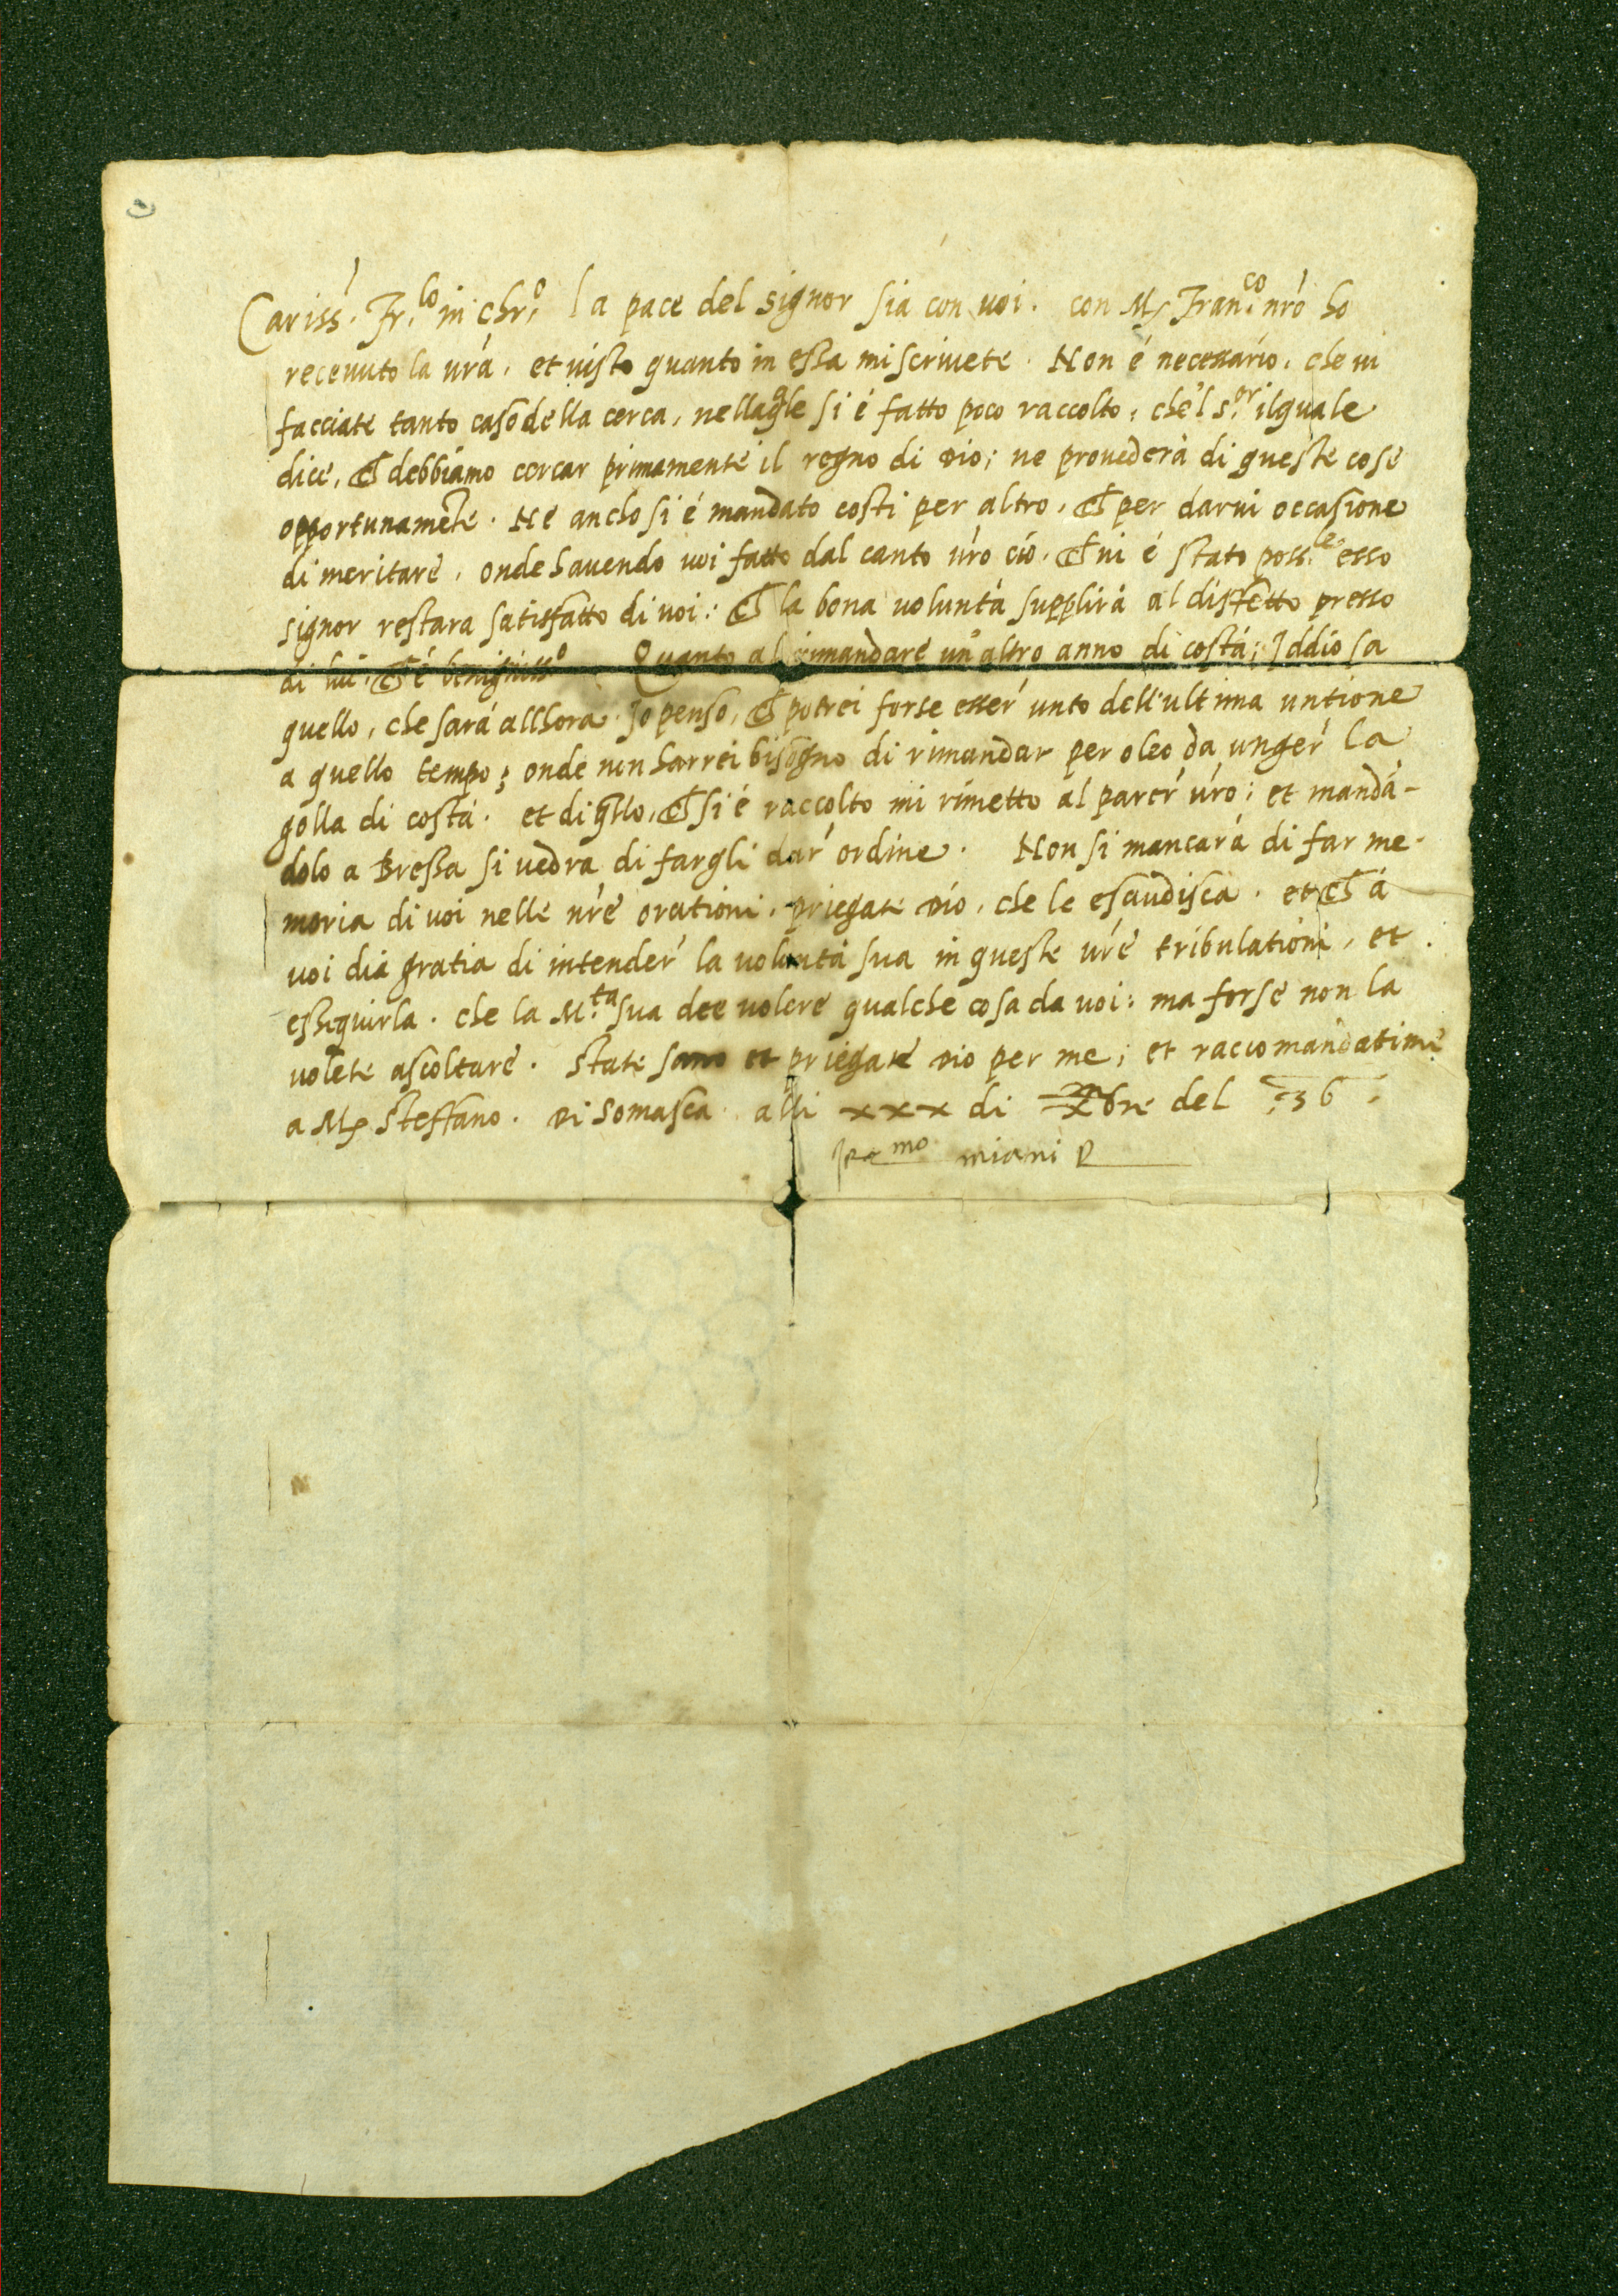 Cariss. Fr.lo in chr.o la pace del signor sia con voi. con Ms Fran.co nrō ho
receuuto la vrā, et uisto quanto in essa mi scriuete. Non é necessario, che ui
facciate tanto caso della cerca, nella qle si é fatto poco raccolto, che'l s.or ilquale
dice, ch debbiamo cercar primamente il regno di Dio; ne prouederà di queste cose
opportunamēte. Ne ancho si é mandato costi per altro, ch per darui occasione
di meritare, onde hauendo uoi fatto dal canto vrō ciò, ch ui é stato poss.le esso
signor restara satisfatto di uoi: ch la bona uoluntà supplirà al diffetto presso
di lui, ch é benigniss.o Quanto al rimandare un altro anno di costà; Iddio sa
quello, che sará allhora. Io penso, ch potrei forse esser unto dell'ultima untione
a quello tempo; onde non harrei bisogno di rimandar per oleo da unger la
golla di costá. et di qllo, ch si é raccolto mi rimetto al parer vrō; et mandā-
dolo a Bressa si vedra di fargli dar ordine. Non si mancará di far me-
moria di uoi nelle nrē orationi, priegate Dio, che le esaudisca. et ch á
uoi dia gratia di intender la voluntá sua in queste vrē tribulationi, et
essequirla. che la M.ta sua dee uolere qualche cosa da uoi: ma forse non la
uolete ascoltare. State sano et priegate Dio per me; et raccomandatime
a Ms Steffano. Di Somasca alli xxx di Xbre del 36
miani